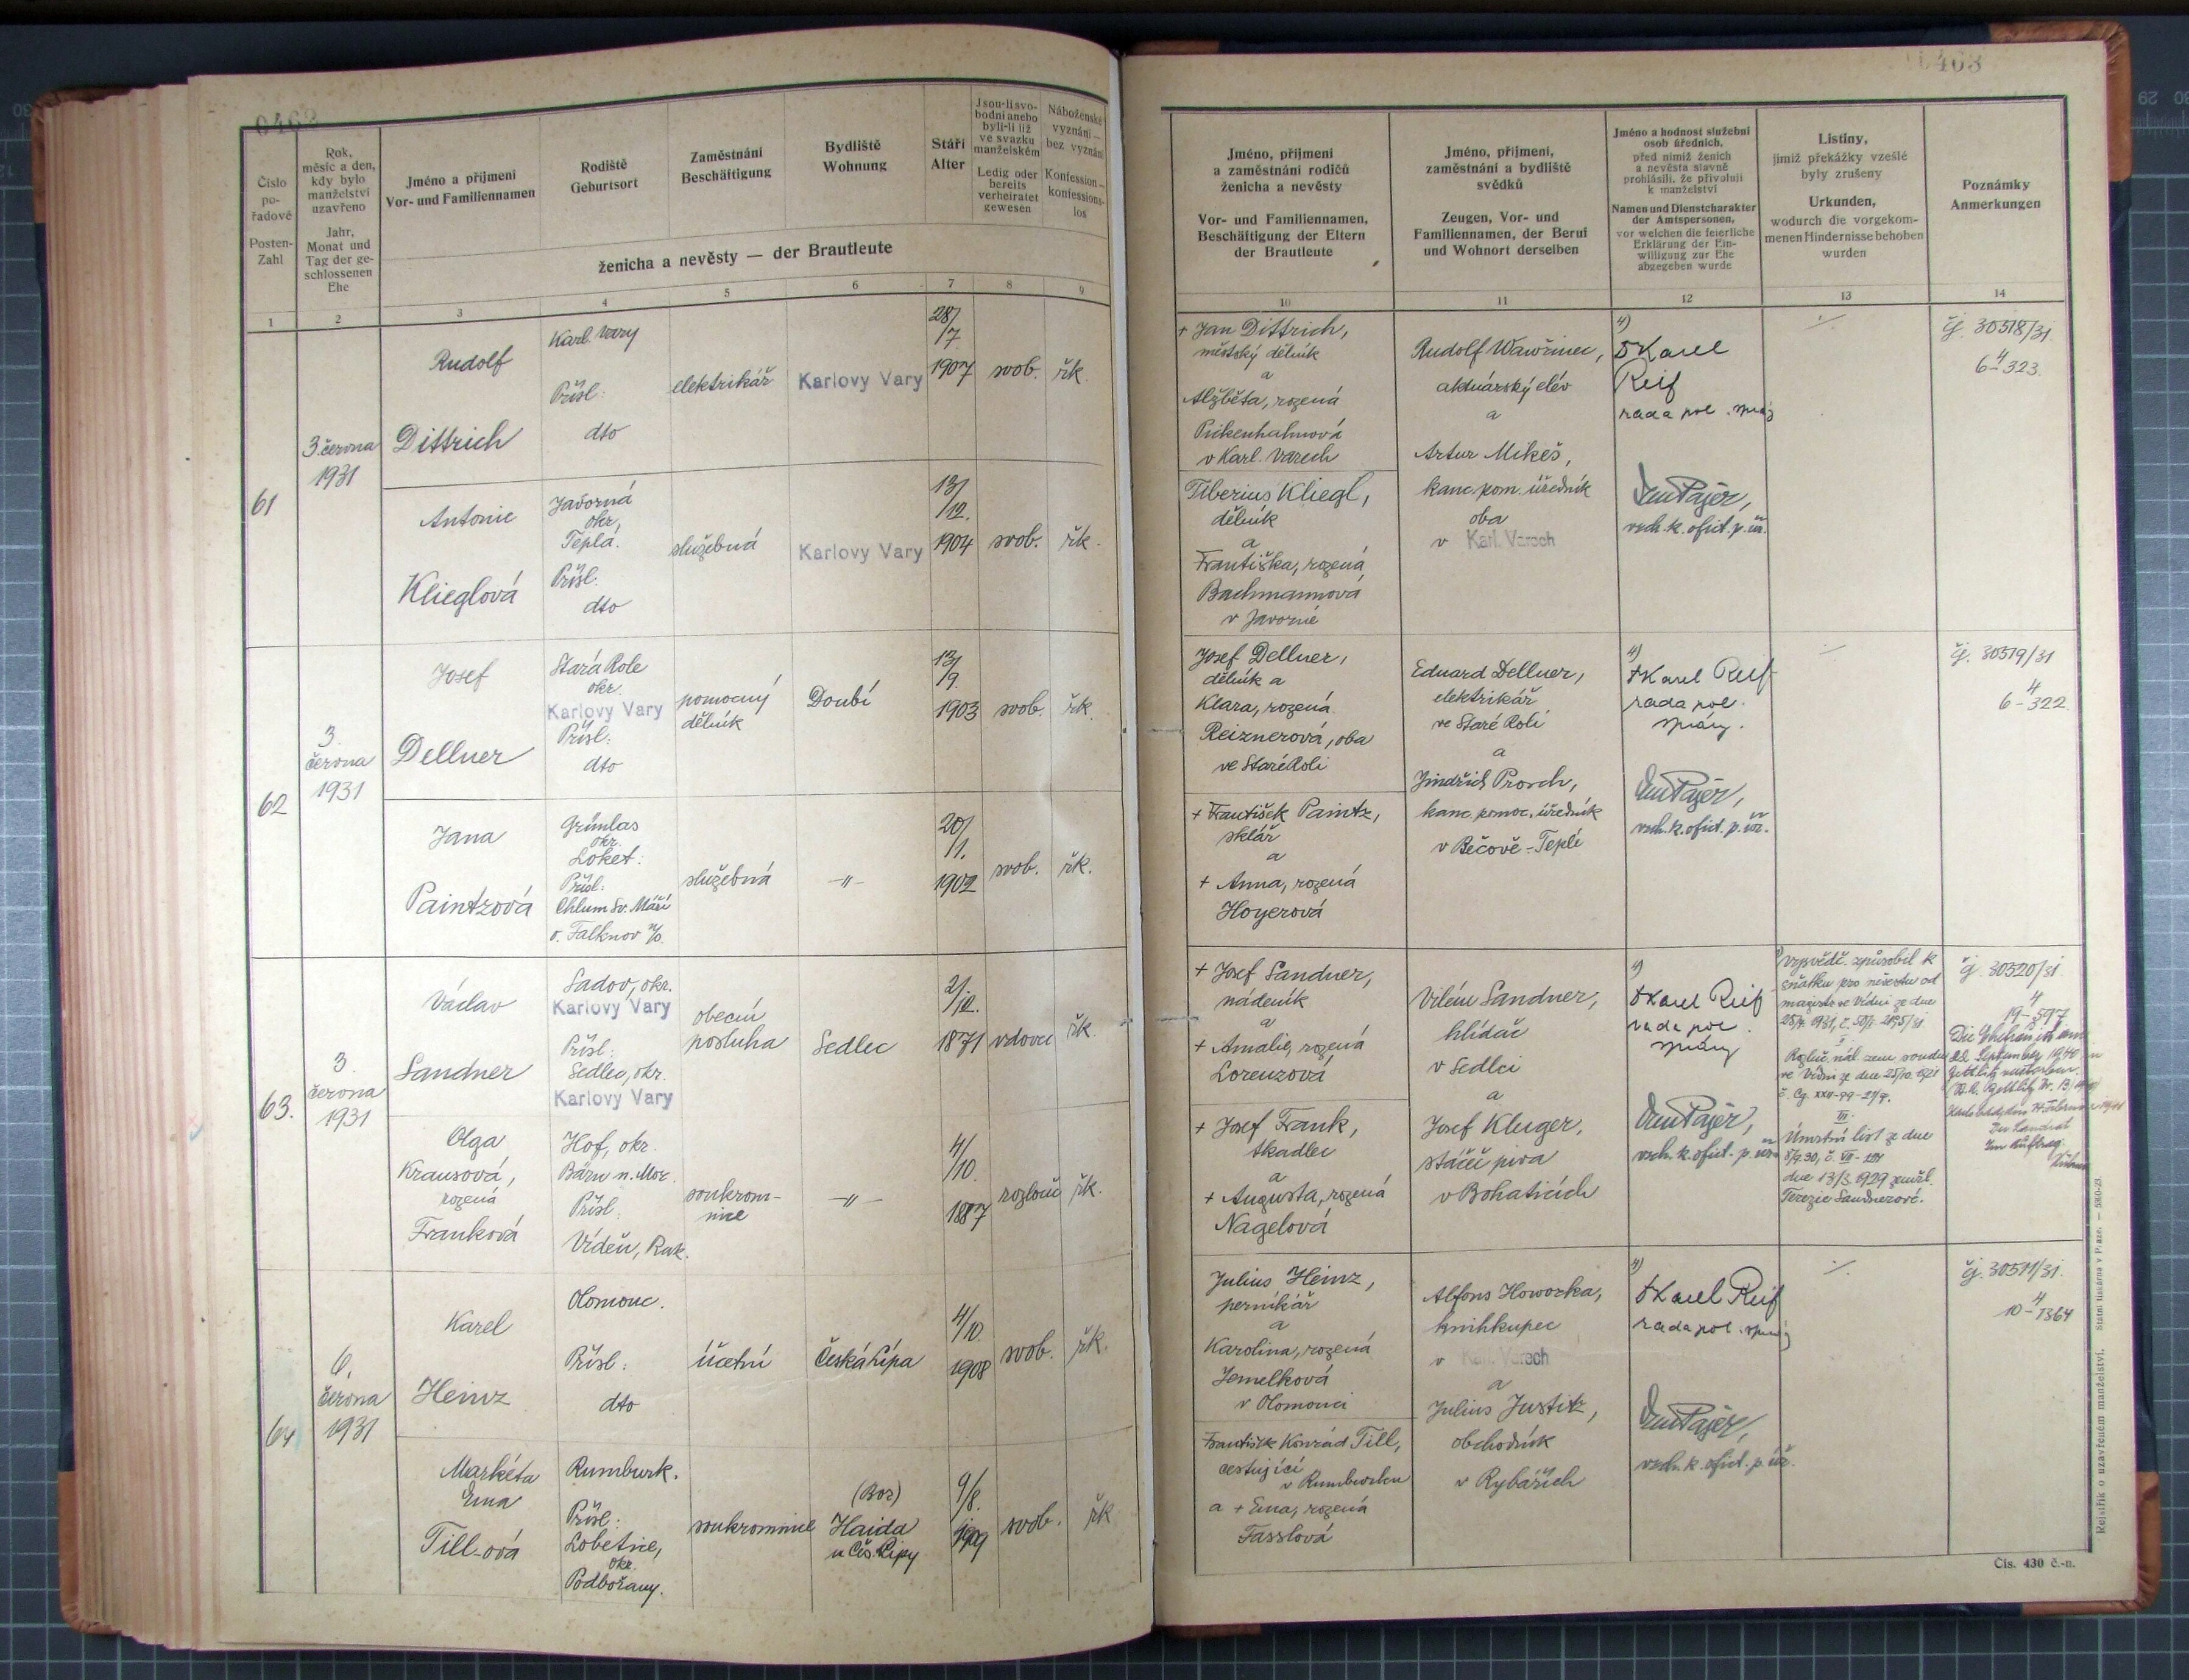 0462
Číslo
po-
řadové
Posten-
Zahl
Rok,
měsíc a den,
kdy bylo
manželství
uzavřeno
Jahr,
Monat und
Tag der ge-
schlossenen
Ehe
Jméno a příjmení
Vor- und Familiennamen
Rodiště
Geburtsort
Zaměstnání
Beschäftigung
Bydliště
Wohnung
Stáří
Alter
Jsou-li svo-
bodni anebo
byli-li již
ve svazku
manželském
Ledig oder
bereits
verheiratet
gewesen
Náboženské
vyznání —
bez vyznání
Konfession —
konfessions-
los
ženicha a nevěsty — der Brautleute
1 2 3 4 5 6 7 8 9
61
3. června
1931
Rudolf
Dittrich
Karl. Vary
Přísl:
dto
elektrikář
Karlovy Vary
28/
/7
1907
svob.
řk.
Antonie
Klieglová
Javorná
okr.
Teplá.
Přísl.
dto
služebná
Karlovy Vary
13/
/12.
1904
svob.
řk.
62
3.
června
1931
Josef
Dellner
Stará Role
okr.
Karlovy Vary
Přísl:
dto
pomocný
dělník
Doubí
13/
/9.
1903
svob.
řk.
Jana
Paintzová
Grünlas
okr.
Loket.
Přísl:
Chlum Sv. Máří
o. Falknov n/O.
služebná
-"-
20/
/1.
1902
svob.
řk.
63.
3.
června
1931
Václav
Sandner
Sadov, okr.
Karlovy Vary
Přísl:
Sedlec, okr.
Karlovy Vary
obecní
posluha
Sedlec
2/
/12.
1871
vdovec
řk.
Olga
Krausová,
rozená
Franková
Hof, okr.
Bärn n. Mor.
Přísl:
Vídeň, Rak.
soukrom-
nice
-"-
4/
/10.
1887
rozlouč.
řk.
64
6.
června
1931
Karel
Heinz
Olomouc.
Přísl:
dto
účetní
Česká Lípa
4/
/10.
1908
svob.
řk.
Markéta
Ema
Till-ová
Rumburk.
Přísl:
Lobetnic,
okr.
Podbořany.
soukromnice
(Bor)
Haida
u Čes. Lípy
9/
/8.
1909
svob.
řk
0463
Jméno, příjmení
a zaměstnání rodičů
ženicha a nevěsty
Vor- und Familiennamen,
Beschäftigung der Eltern
der Brautleute
Jméno, příjmení,
zaměstnání a bydliště
svědků
Zeugen, Vor- und
Familiennamen, der Beruf
und Wohnort derselben
Jméno a hodnost služební
osob úředních,
před nimiž ženich
a nevěsta slavně
prohlásili, že přivolují
k manželství
Namen und Dienstcharakter
der Amtspersonen,
vor welchen die feierliche
Erklärung der Ein-
willigung zur Ehe
abgegeben wurde
Listiny,
jimiž překážky vzešlé
byly zrušeny
Urkunden,
wodurch die vorgekom-
menen Hindernisse behoben
wurden
Poznámky
Anmerkungen
10 11 12 13 14
+ Jan Dittrich,
městský dělník
a
Alžběta, rozená
v Karl. Varech
Rudolf Wawřinec,
aktuárský elév
a
Artur Mikeš,
kanc. pom. úředník
oba
v Karl. Varech
4)
Karel
Reif
rada pol. správy
čj. 30518/31
4
6-323.
Tiberius Kliegl,
dělník
a
Františka, rozená
Bachmannová
v Javorné
Josef Dellner,
dělník a
Klara, rozená
Reiznerová, oba
ve Staré Roli
Eduard Dellner,
elektrikář
ve Staré Roli
a
Jindřich Prosch,
kanc. pomoc. úředník
v Bečově-Teplé
4)
Karel Reif
rada pol.
správy.
čj. 30519/31
4
6-322
+ František Paintz,
sklář
a
+ Anna, rozená
Hoyerová
+ Josef Sandner,
nádeník
a
+ Amalie, rozená
Lorenzová
Vilém Sandner,
hlídač
v Sedlci
a
Josef Kluger,
stáčeč piva
v Bohaticích
4)
Karel Reif
rada pol.
správy
způsobil. k
sňatku pro nevěstu od
ve Vídni ze dne
ve Vídni ze dne 25/10.
III.
Úmrtní list ze dne
dne 13/3. 1929 zemřel.
Terezie Sandnerové.
čj. 30520/31
4
19-597
Die Ehefrau ist am
22. September 1940 in
Zettlitz verstorben.
Der Landrat
Im Auftrag:
+ Josef Frank,
tkadlec
a
+ Augusta, rozená
Nagelová
Julius Heinz,
perníkář
a
Karolina, rozená
Jemelková
v Olomouci
Alfons Howorka,
knihkupec
v Karl. Varech
a
Julius Justitz,
obchodník
v Rybářích
4)
Karel Reif
rada pol. správy
čj. 30511/31.
4
10-1364
František Konrád Till,
cestující
v Rumburku
a + Ema, rozená
Fasslová
Rejstřík o uzavřeném manželství. Státní tiskárna v Praze. — 5380-23.
Čís. 430 č.-n.